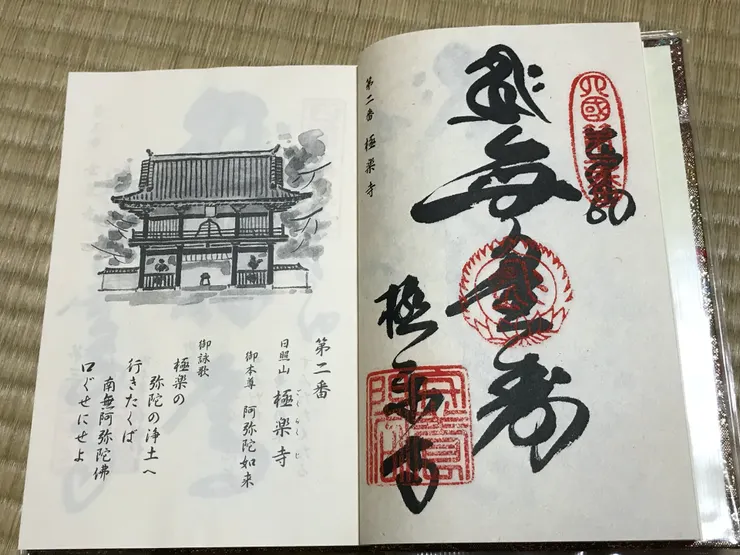 無量寿
極楽寺
第二番 極楽寺
第二番
日照山 極楽寺
ごくらくじ
御本尊 阿弥陀如来
御詠歌
極楽の
弥陀の浄土へ
行きたくば
南無阿弥陀佛
口ぐせにせよ